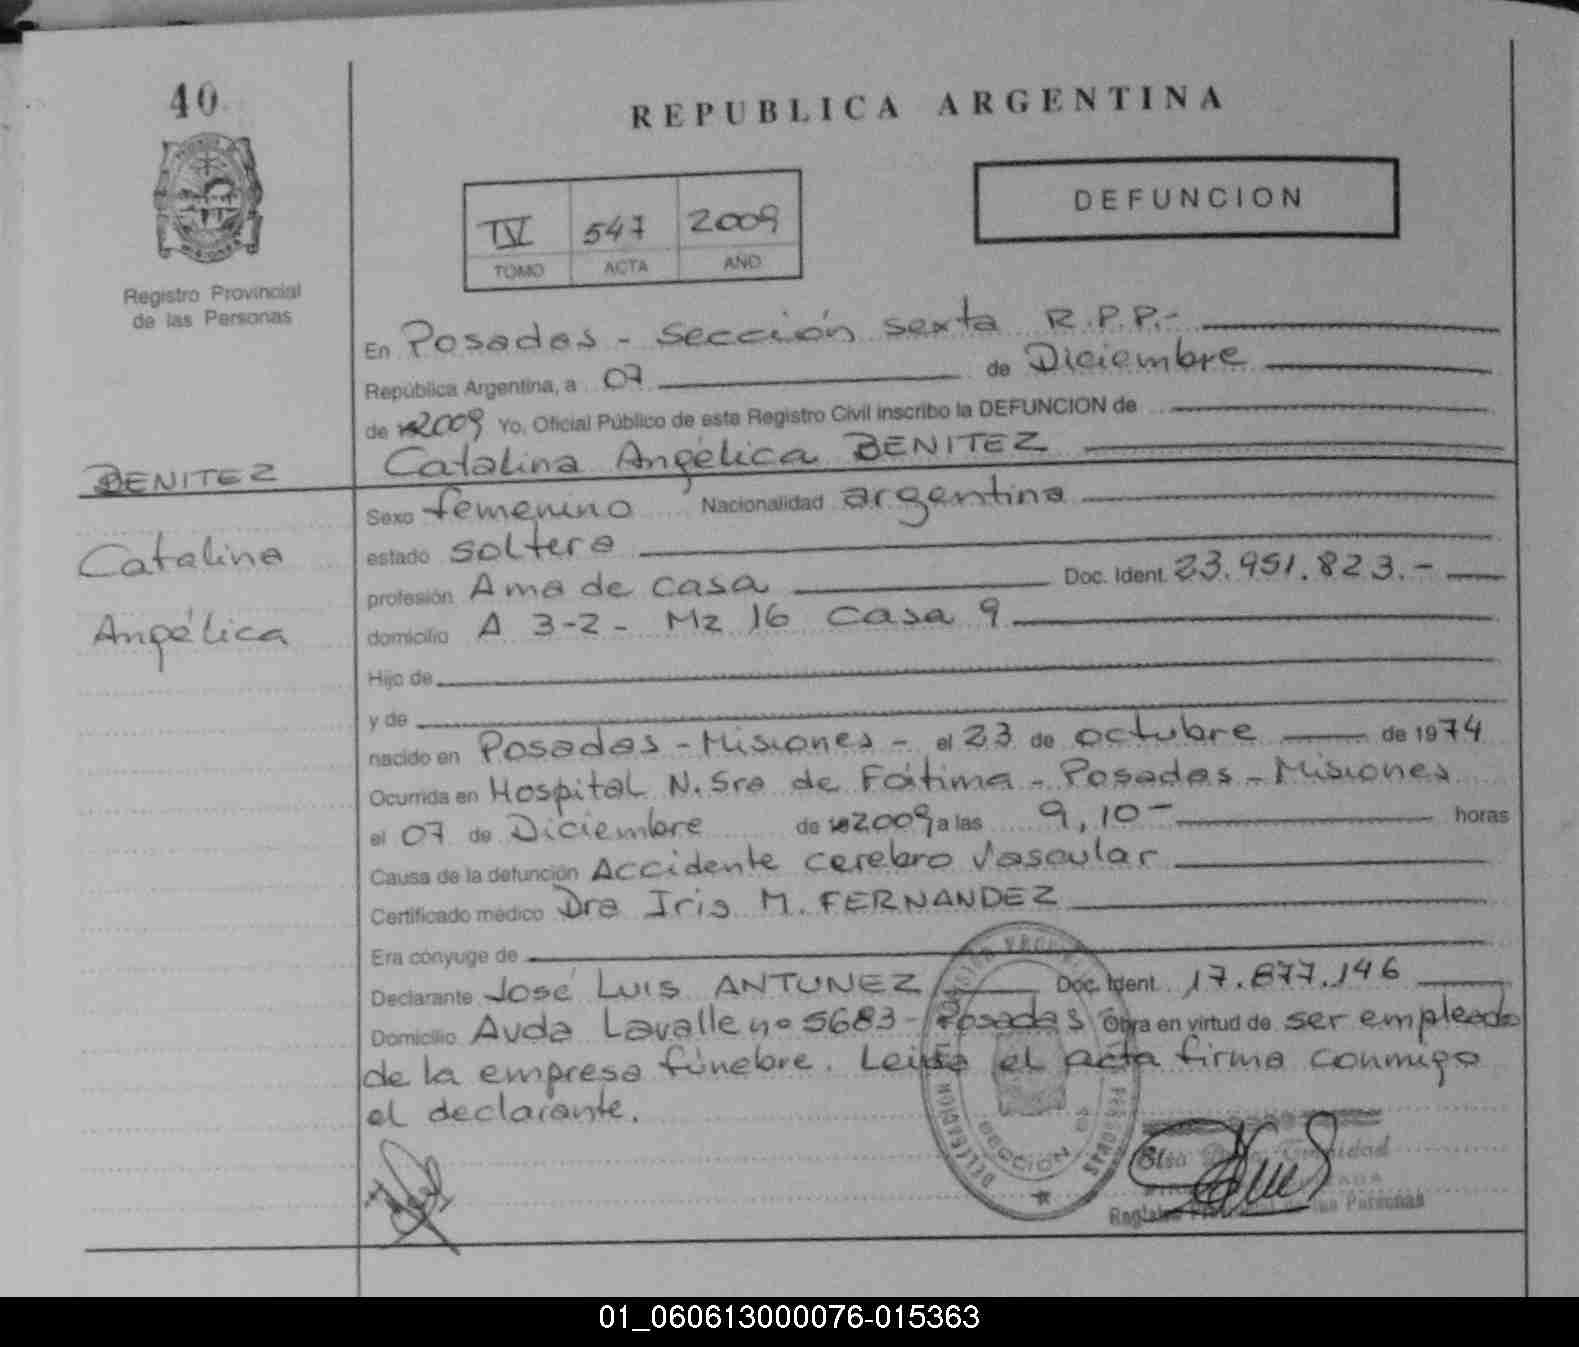 40
REPUBLICA ARGENTINA
DEFUNCION
TV 547 2009
TOMO ACTA AÑO
Registro Provincial
de las Personas
En Posadas - Sección sexta R.P.P.-
República Argentina, a 07 de Diciembre
de 2009 Yo, Oficial Público de este Registro Civil inscribo la DEFUNCION de
Catalina Angélica BENITEZ
BENITEZ
Catalina
Angélica
Sexo femenino Nacionalidad argentina
estado soltera
profesión Ama de casa Doc. Ident. 23.951.823.-
domicilio A 3-2 - Mz 16 Casa 9
Hijo de
y de
nacido en Posadas - Misiones - el 23 de octubre de 1974
Ocurrida en Hospital N. Sra de Fátima - Posadas - Misiones
el 07 de Diciembre de 2009 a las 9,10- horas
Causa de la defunción Accidente cerebro vascular
Certificado médico Dra Iris M. FERNANDEZ
Era cónyuge de
Declarante José Luis ANTUNEZ Doc. Ident. 17.877.146
Domicilio Avda Lavalle nº 5683 - Posadas Obra en virtud de ser empleado
de la empresa fúnebre. Leída el acta firma conmigo
el declarante.
SECCION
Personas
01_060613000076-015363